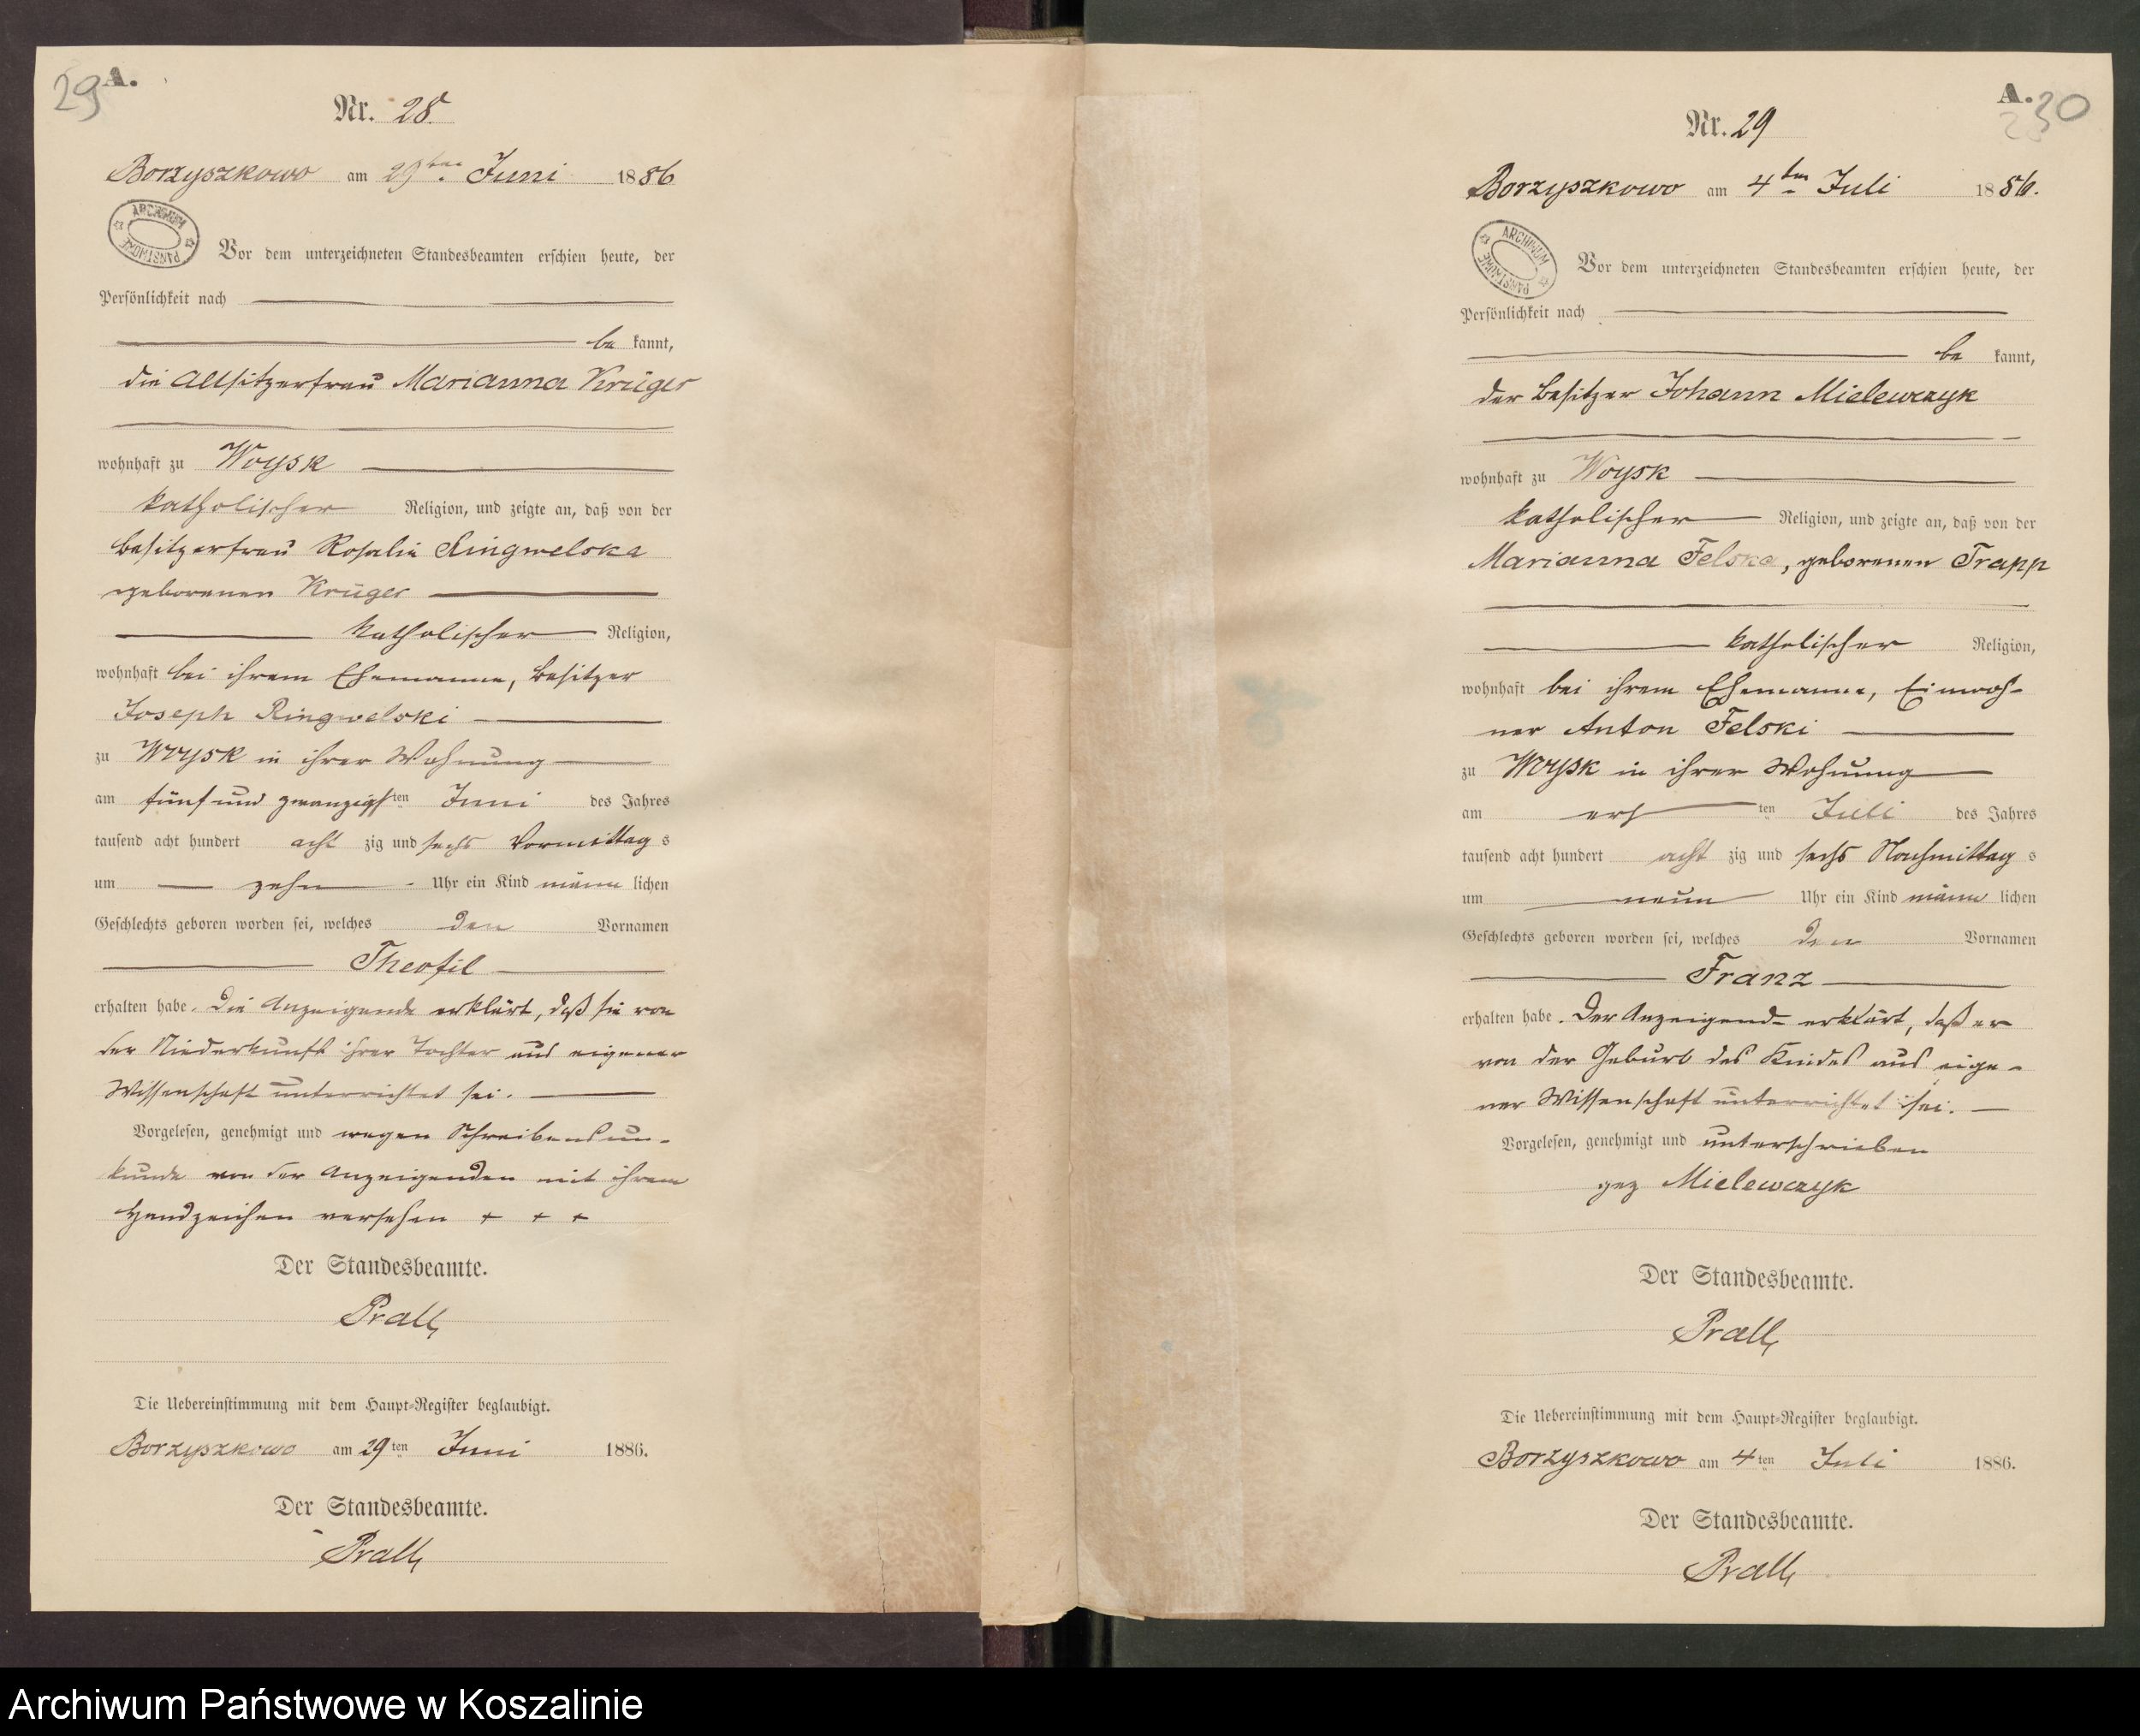 29
A.
Nr. 28
Borzyszkowo am 29ten Juni 1886
ARCHIWUM PAŃSTWOWE
Vor dem unterzeichneten Standesbeamten erschien heute, der
Persönlichkeit nach
be kannt,
die Altsitzerfrau Marianna Krüger
wohnhaft zu Woysk
katholischer Religion, und zeigte an, daß von der
Besitzerfrau Rosalie Ringwelska
geborenen Krüger
katholischer Religion,
wohnhaft bei ihrem Ehemanne, Besitzer
Joseph Ringwelski
zu Woysk in ihrer Wohnung
am fünf und zwanzigsten Juni des Jahres
tausend acht hundert acht zig und sechs Vormittag s
um zehn Uhr ein Kind männ lichen
Geschlechts geboren worden sei, welches den Vornamen
Theofil
erhalten habe. Die Anzeigende erklärt, daß sie von
der Niederkunft ihrer Tochter aus eigener
Wissenschaft unterrichtet sei.
Vorgelesen, genehmigt und wegen Schreibensun-
kunde von der Anzeigenden mit ihrem
Handzeichen versehen + + +
Der Standesbeamte.
Prall
Die Uebereinstimmung mit dem Haupt-Register beglaubigt.
Borzyszkowo am 29ten Juni 1886.
Der Standesbeamte.
Prall
A.
30
Nr. 29
Borzyszkowo am 4ten Juli 1886.
ARCHIWUM PAŃSTWOWE
Vor dem unterzeichneten Standesbeamten erschien heute, der
Persönlichkeit nach
be kannt,
der Besitzer Johann Mielewczyk
wohnhaft zu Woysk
katholischer Religion, und zeigte an, daß von der
Marianna Felska, geborenen Trapp
katholischer Religion,
wohnhaft bei ihrem Ehemanne, Einwoh-
ner Anton Felski
zu Woysk in ihrer Wohnung
am ers ten Juli des Jahres
tausend acht hundert acht zig und sechs Nachmittag s
um neun Uhr ein Kind männ lichen
Geschlechts geboren worden sei, welches den Vornamen
Franz
erhalten habe. Der Anzeigende erklärt, daß er
von der Geburt des Kindes aus eige-
ner Wissenschaft unterrichtet sei.
Vorgelesen, genehmigt und unterschrieben
gez Mielewczyk
Der Standesbeamte.
Prall
Die Uebereinstimmung mit dem Haupt-Register beglaubigt.
Borzyszkowo am 4ten Juli 1886.
Der Standesbeamte.
Prall
Archiwum Państwowe w Koszalinie